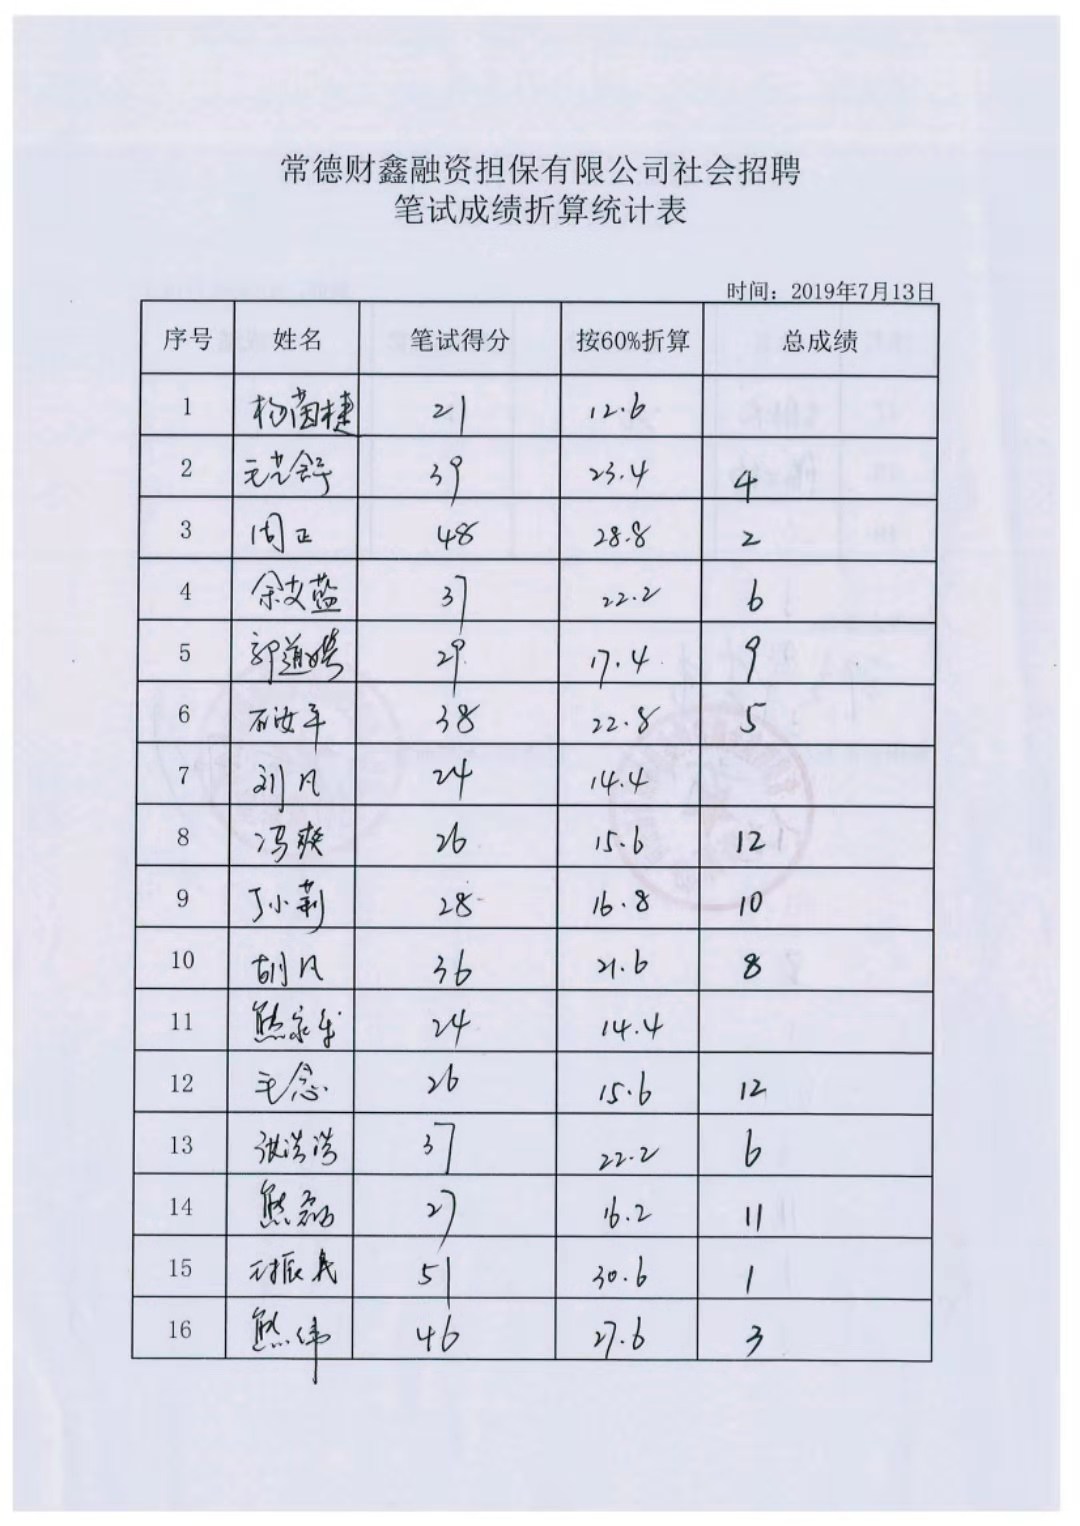 常德财鑫融资担保有限公司社会招聘
笔试成绩折算统计表
时间：2019年7月13日
序号 姓名 笔试得分 按60%折算 总成绩
1 杨茵捷 21 12.6
2 39 23.4 4
3 周正 48 28.8 2
4 余文蓝 37 22.2 6
5 郭道 29 17.4 9
6 石汝平 38 22.8 5
7 刘凡 24 14.4
8 冯爽 26 15.6 12
9 丁小莉 28 16.8 10
10 胡凡 36 21.6 8
11 熊家 24 14.4
12 毛念 26 15.6 12
13 张浩浩 37 22.2 6
14 熊磊 27 16.2 11
15 振 51 30.6 1
16 熊伟 46 27.6 3